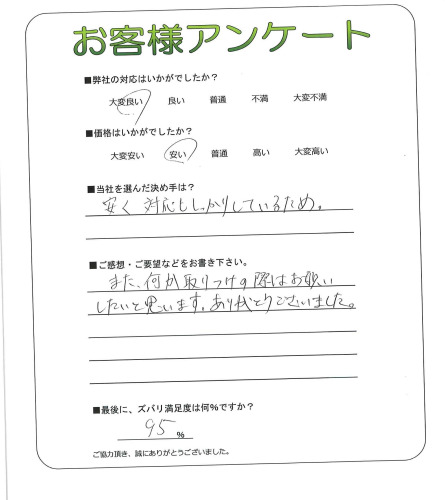 お客様アンケート
■弊社の対応はいかがでしたか?
大変良い 良い 普通 不満 大変不満
■価格はいかがでしたか?
大変安い 安い 普通 高い 大変高い
■当社を選んだ決め手は?
安く 対応もしっかりしているため。
■ご感想・ご要望などをお書き下さい。
また、何か取りつけの際はお願い
したいと思います。ありがとうございました。
■最後に、ズバリ満足度は何%ですか?
95 %
ご協力頂き、誠にありがとうございました。